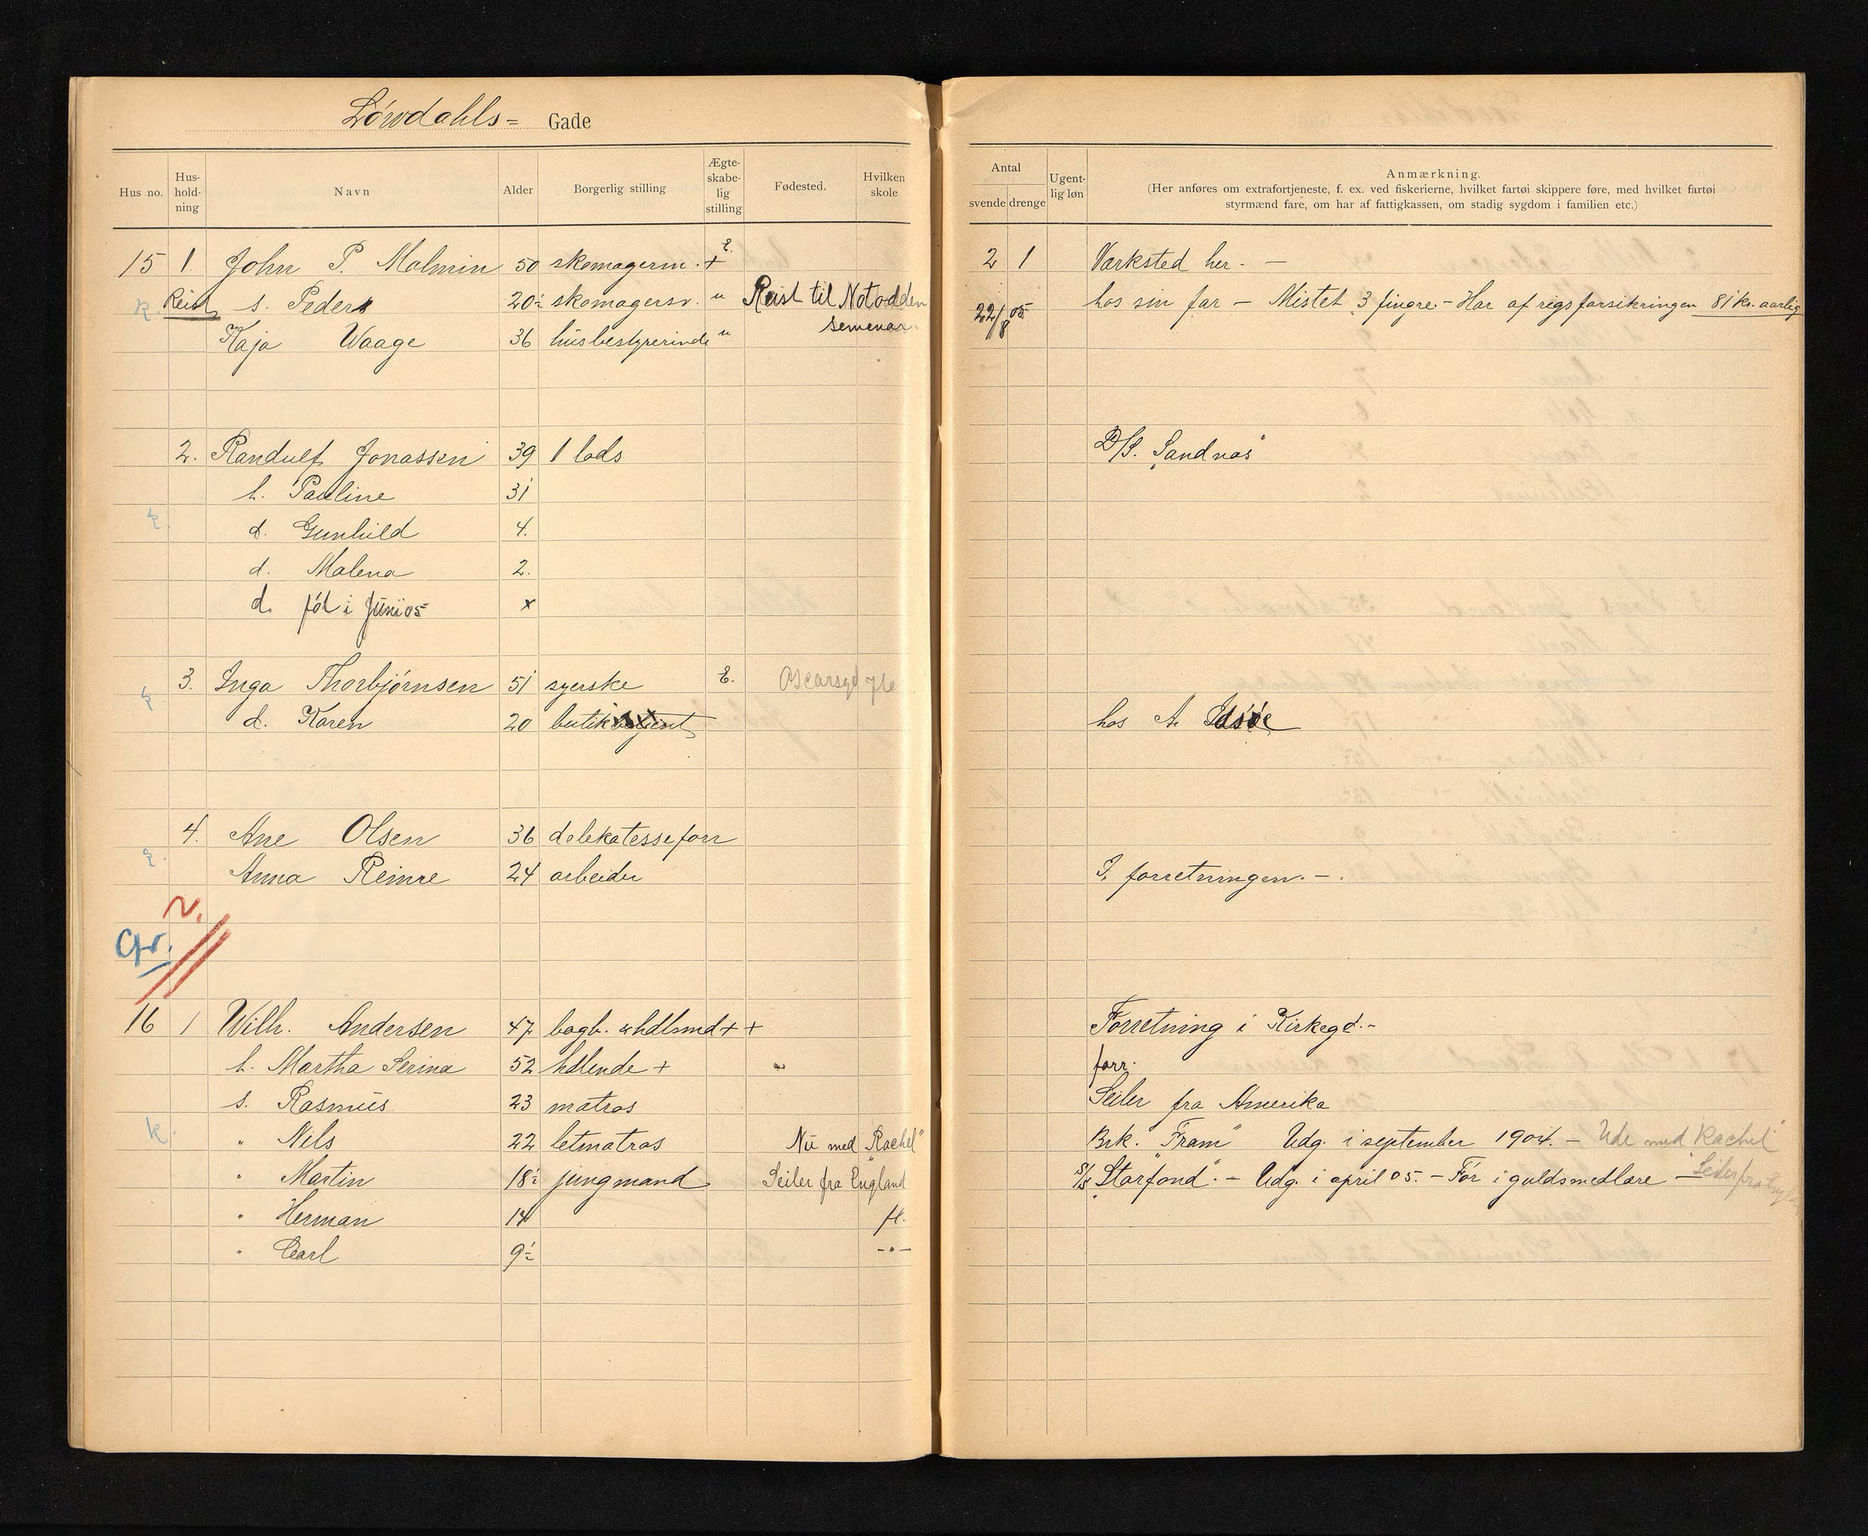 Løwdahls= Gade
Hus no. Hus-hold-ning Navn Alder Borgerlig stilling Ægte-skabe-lig stilling Fødested. Hvilken skole
Antal svende drenge Ugent-lig løn Anmærkning.
(Her anføres om extrafortjeneste, f. ex. ved fiskerierne, hvilket fartøi skippere føre, med hvilket fartøi
styrmænd fare, om har af fattigkassen, om stadig sygdom i familien etc.)
15 1. John P. Malmin 50 skomagerm. + E. 2 1 Værksted her. —
k. Reist s. Peder 20 skomagersv. u Reist til Notodden 22/8 05 hos sin far — Mistet 3 fingre. — Har af rigsforsikringen 81 kr. aarlig
Kaja Waage 36 husbestyrerinde u semenar.
2. Randulf Jonassen 39 1 lods D/S. "Sandnæs"
h. Pauline 31
d. Gunhild 4.
d. Malena 2.
d. fød i Juni 05 x
3. Inga Thorbjørnsen 51 syerske E. Oscarsgd
d. Karen 20 butik hos A. Idsøe
4. Ane Olsen 36 delekatesseforr
Anna Reinre 24 arbeider I forretningen. —.
N.
Gr.
16 1 Wilh. Andersen 47 bogb. & hdlsmd + + Forretning i Kirkegd. -
h. Martha Serina 52 hdlende + " forr.
s. Rasmus 23 matros Seiler fra Amerika
k. " Nils 22 letmatros Nu med "Rachel" Brk. "Fram" Udg. i september 1904. — Ude med Rachel"
" Martin 18 jungmand Seiler fra England S/S "Storfond". — Udg. i april 05. — Før i guldsmedlære — Seiler fra
" Herman 14 fl.
" Carl 9 - " -